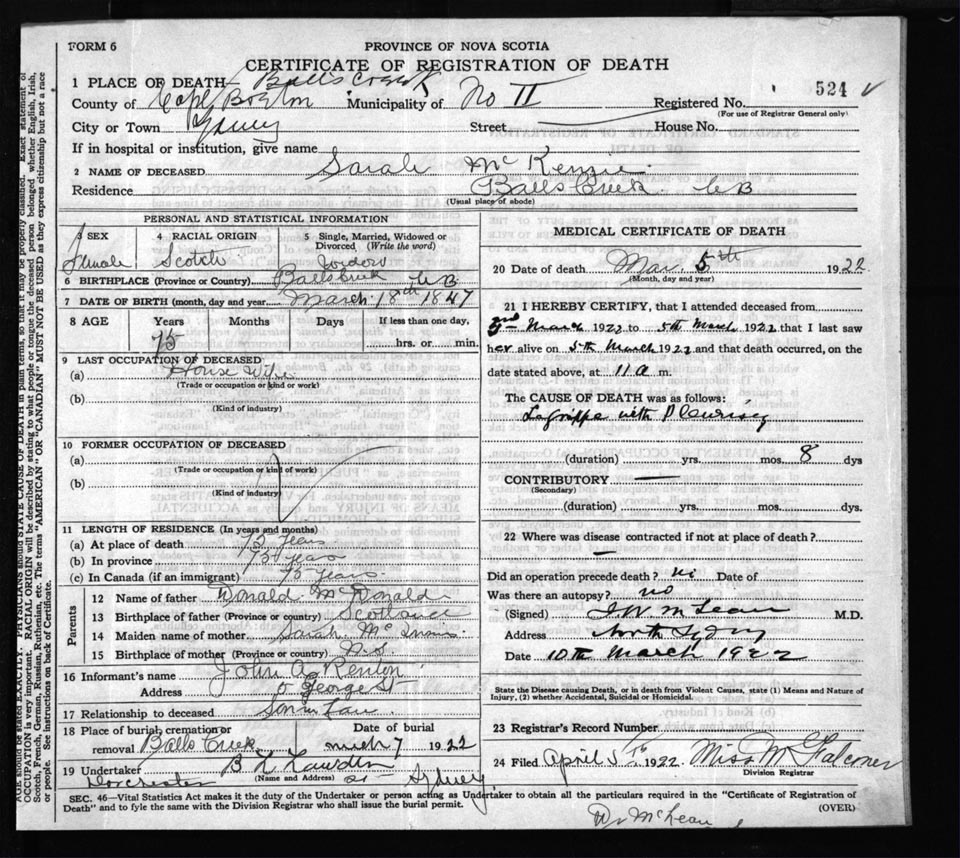 FORM 6
PROVINCE OF NOVA SCOTIA
CERTIFICATE OF REGISTRATION OF DEATH
524
1 PLACE OF DEATH Balls Creek
County of Cape Breton Municipality of No II Registered No.
(For use of Registrar General only)
City or Town Sydney Street House No.
If in hospital or institution, give name
2 NAME OF DECEASED Sarah McKenzie
Residence Balls Creek. CB
(Usual place of abode)
PERSONAL AND STATISTICAL INFORMATION
3 SEX Female
4 RACIAL ORIGIN Scotch
5 Single, Married, Widowed or Divorced (Write the word) Widow
6 BIRTHPLACE (Province or Country) Ballsbreek CB
7 DATE OF BIRTH (month, day and year) March 18th 1847
8 AGE Years Months Days If less than one day,
75 hrs. or min.
9 LAST OCCUPATION OF DECEASED
(a) House Wife
(Trade or occupation or kind or work)
(b)
(Kind of industry)
10 FORMER OCCUPATION OF DECEASED
(a)
(Trade or occupation or kind of work)
(b)
(Kind of industry)
11 LENGTH OF RESIDENCE (In years and months)
(a) At place of death 75 Years
(b) In province 75 Years
(c) In Canada (if an immigrant) 75 Years.
Parents
12 Name of father Donald McDonald
13 Birthplace of father (Province or country) Scotland
14 Maiden name of mother Sarah Mc
15 Birthplace of mother (Province or country) N.S.
16 Informant's name John A
Address George St
17 Relationship to deceased Son in Law.
18 Place of burial, cremation or removal Balls Creek
Date of burial March 7 1922
19 Undertaker B L
(Name and Address)
Dorchester St Sydney
MEDICAL CERTIFICATE OF DEATH
20 Date of death Mar. 5th 1922
(Month, day and year)
21 I HEREBY CERTIFY, that I attended deceased from
March 1922 to 5th March 1922 that I last saw
her alive on 5th March 1922 and that death occurred, on the
date stated above, at 11 a m.
The CAUSE OF DEATH was as follows:
La grippe with Pleurisy
(duration) yrs. mos. 8 dys
CONTRIBUTORY
(Secondary)
(duration) yrs. mos. dys.
22 Where was disease contracted if not at place of death?
Did an operation precede death? no Date of
Was there an autopsy? no
(Signed) McLean M.D.
Address North Sydney
Date 10th March 1922
State the Disease causing Death, or in death from Violent Causes, state (1) Means and Nature of
Injury, (2) whether Accidental, Suicidal or Homicidal.
23 Registrar's Record Number
24 Filed April 5th 1922. Miss M Falconer
Division Registrar
SEC. 46—Vital Statistics Act makes it the duty of the Undertaker or person acting as Undertaker to obtain all the particulars required in the "Certificate of Registration of
Death" and to fyle the same with the Division Registrar who shall issue the burial permit. (OVER)
Dr McLean
AGE should be stated EXACTLY. PHYSICIANS should STATE CAUSE OF DEATH in plain terms, so that it may be properly classified. Exact statement of
OCCUPATION is very important. RACIAL ORIGIN will be described by stating to what people or tongue the deceased person belonged whether English, Irish,
Scotch, French, German, Russian, Ruthenian, etc. The terms "AMERICAN" OR "CANADIAN" MUST NOT BE USED as they express citizenship but not a race
or people. See instructions on back of Certificate.